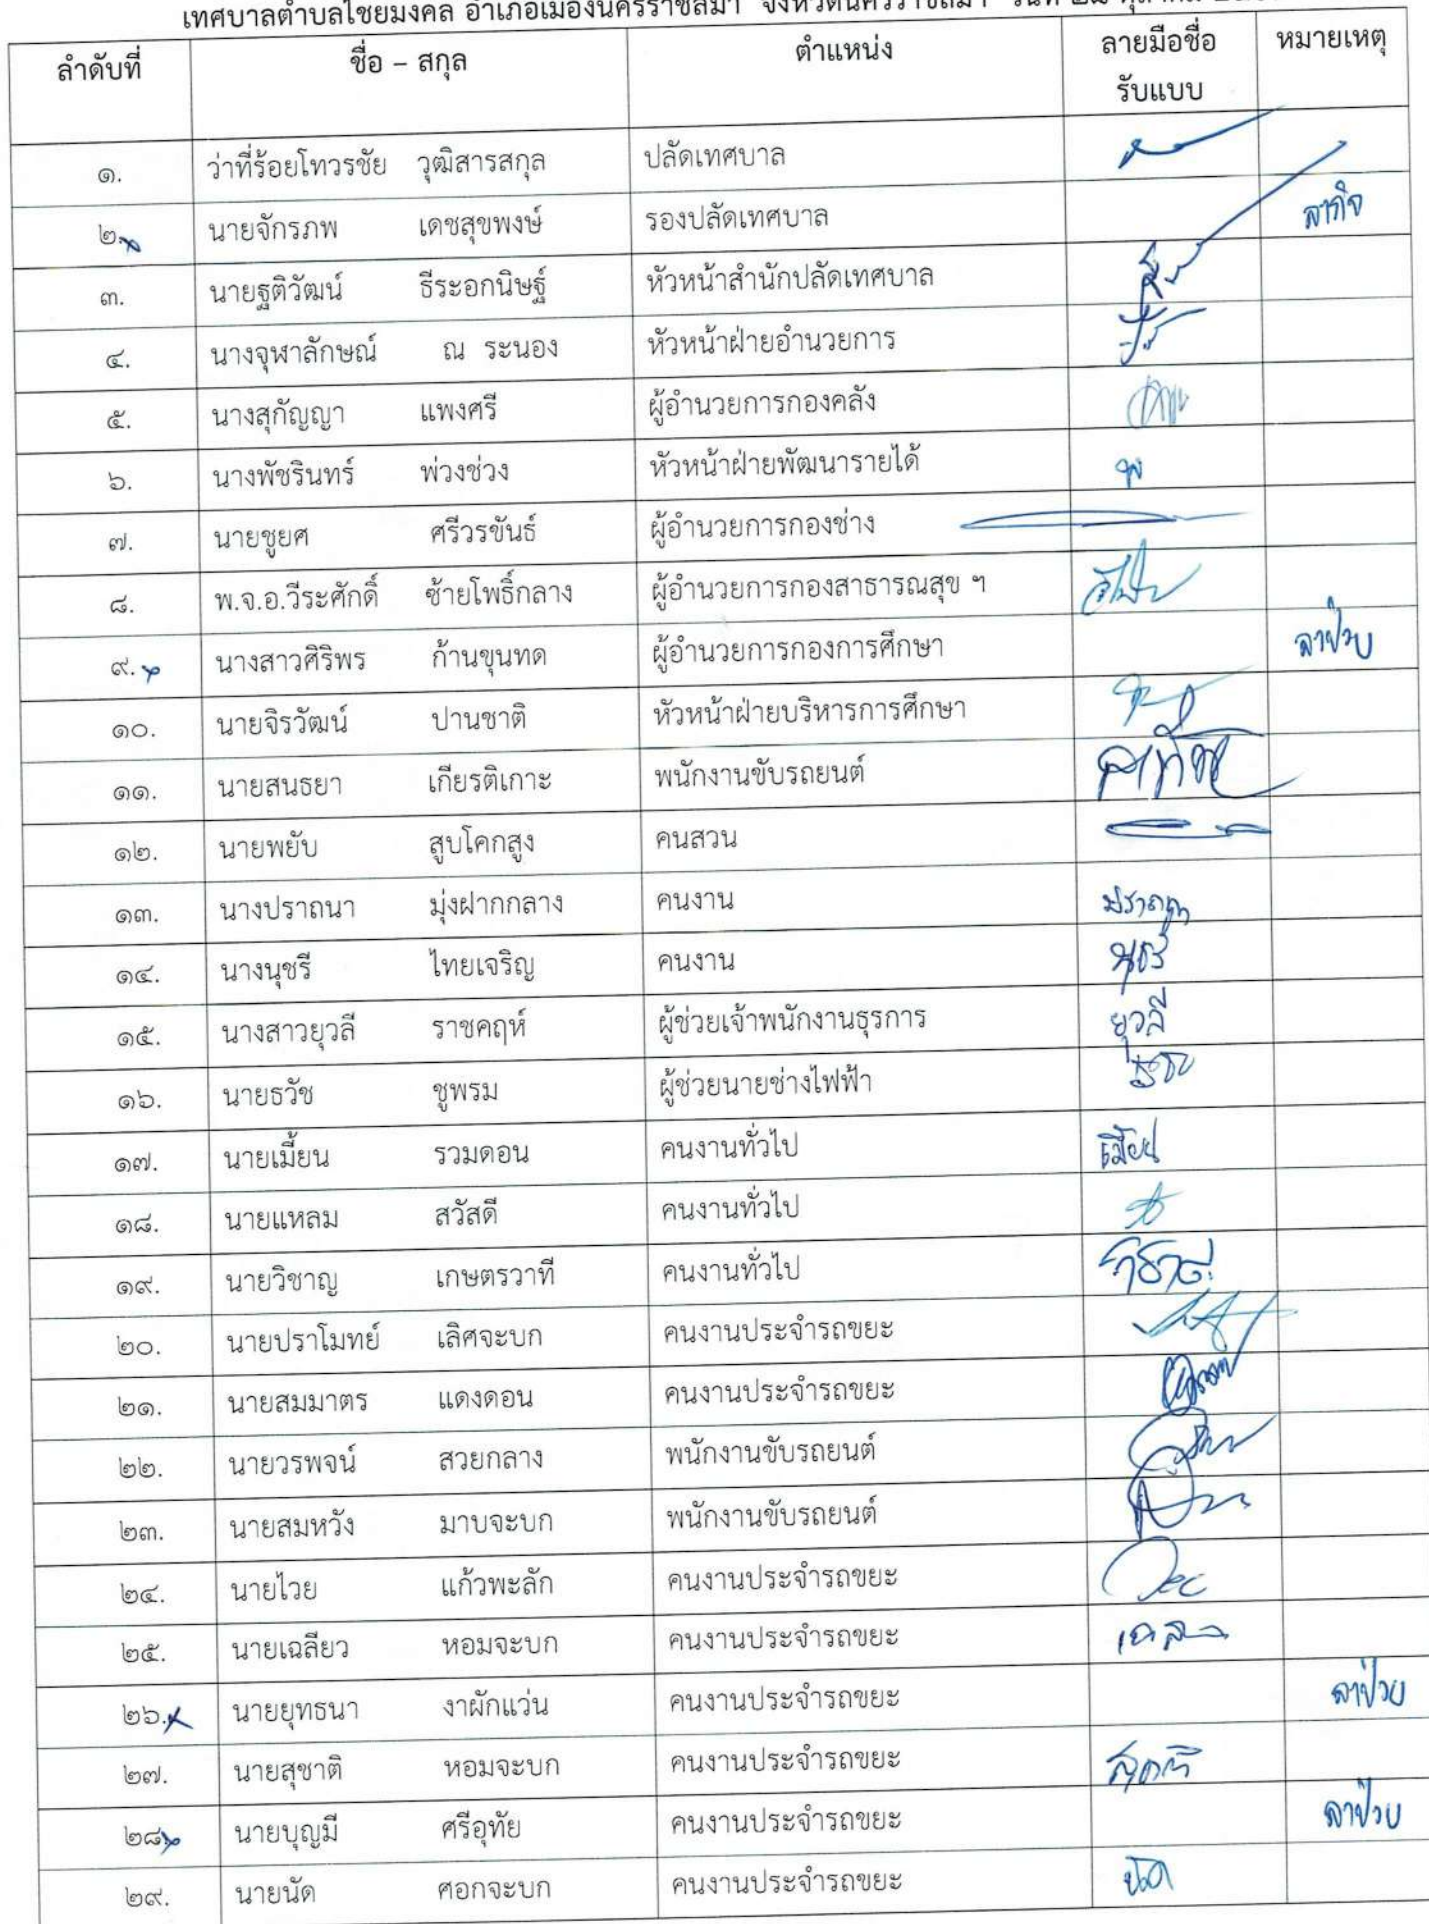 เทศบาลตำบลไชยมงคล อำเภอเมืองนครราชสีมา จังหวัดนครราชสีมา วันที่ ๒๘ ตุลาคม
ลำดับที่ ชื่อ – สกุล ตำแหน่ง ลายมือชื่อ หมายเหตุ
รับแบบ
๑. ว่าที่ร้อยโทวรชัย วุฒิสารสกุล ปลัดเทศบาล
๒. นายจักรภพ เดชสุขพงษ์ รองปลัดเทศบาล ลากิจ
๓. นายฐติวัฒน์ ธีระอกนิษฐ์ หัวหน้าสำนักปลัดเทศบาล
๔. นางจุฬาลักษณ์ ณ ระนอง หัวหน้าฝ่ายอำนวยการ
๕. นางสุกัญญา แพงศรี ผู้อำนวยการกองคลัง
๖. นางพัชรินทร์ พ่วงช่วง หัวหน้าฝ่ายพัฒนารายได้
๗. นายชูยศ ศรีวรขันธ์ ผู้อำนวยการกองช่าง
๘. พ.จ.อ.วีระศักดิ์ ซ้ายโพธิ์กลาง ผู้อำนวยการกองสาธารณสุข ฯ
๙. นางสาวศิริพร ก้านขุนทด ผู้อำนวยการกองการศึกษา ลาป่วย
๑๐. นายจิรวัฒน์ ปานชาติ หัวหน้าฝ่ายบริหารการศึกษา
๑๑. นายสนธยา เกียรติเกาะ พนักงานขับรถยนต์
๑๒. นายพยับ สูบโคกสูง คนสวน
๑๓. นางปราถนา มุ่งฝากกลาง คนงาน ปราถนา
๑๔. นางนุชรี ไทยเจริญ คนงาน นุชรี
๑๕. นางสาวยุวลี ราชคฤห์ ผู้ช่วยเจ้าพนักงานธุรการ ยุวลี
๑๖. นายธวัช ชูพรม ผู้ช่วยนายช่างไฟฟ้า
๑๗. นายเมี้ยน รวมดอน คนงานทั่วไป เมี้ยน
๑๘. นายแหลม สวัสดี คนงานทั่วไป
๑๙. นายวิชาญ เกษตรวาที คนงานทั่วไป
๒๐. นายปราโมทย์ เลิศจะบก คนงานประจำรถขยะ
๒๑. นายสมมาตร แดงดอน คนงานประจำรถขยะ
๒๒. นายวรพจน์ สวยกลาง พนักงานขับรถยนต์
๒๓. นายสมหวัง มาบจะบก พนักงานขับรถยนต์
๒๔. นายไวย แก้วพะลัก คนงานประจำรถขยะ
๒๕. นายเฉลียว หอมจะบก คนงานประจำรถขยะ
๒๖. นายยุทธนา งาผักแว่น คนงานประจำรถขยะ ลาป่วย
๒๗. นายสุชาติ หอมจะบก คนงานประจำรถขยะ สุชาติ
๒๘. นายบุญมี ศรีอุทัย คนงานประจำรถขยะ ลาป่วย
๒๙. นายนัด ศอกจะบก คนงานประจำรถขยะ นัด